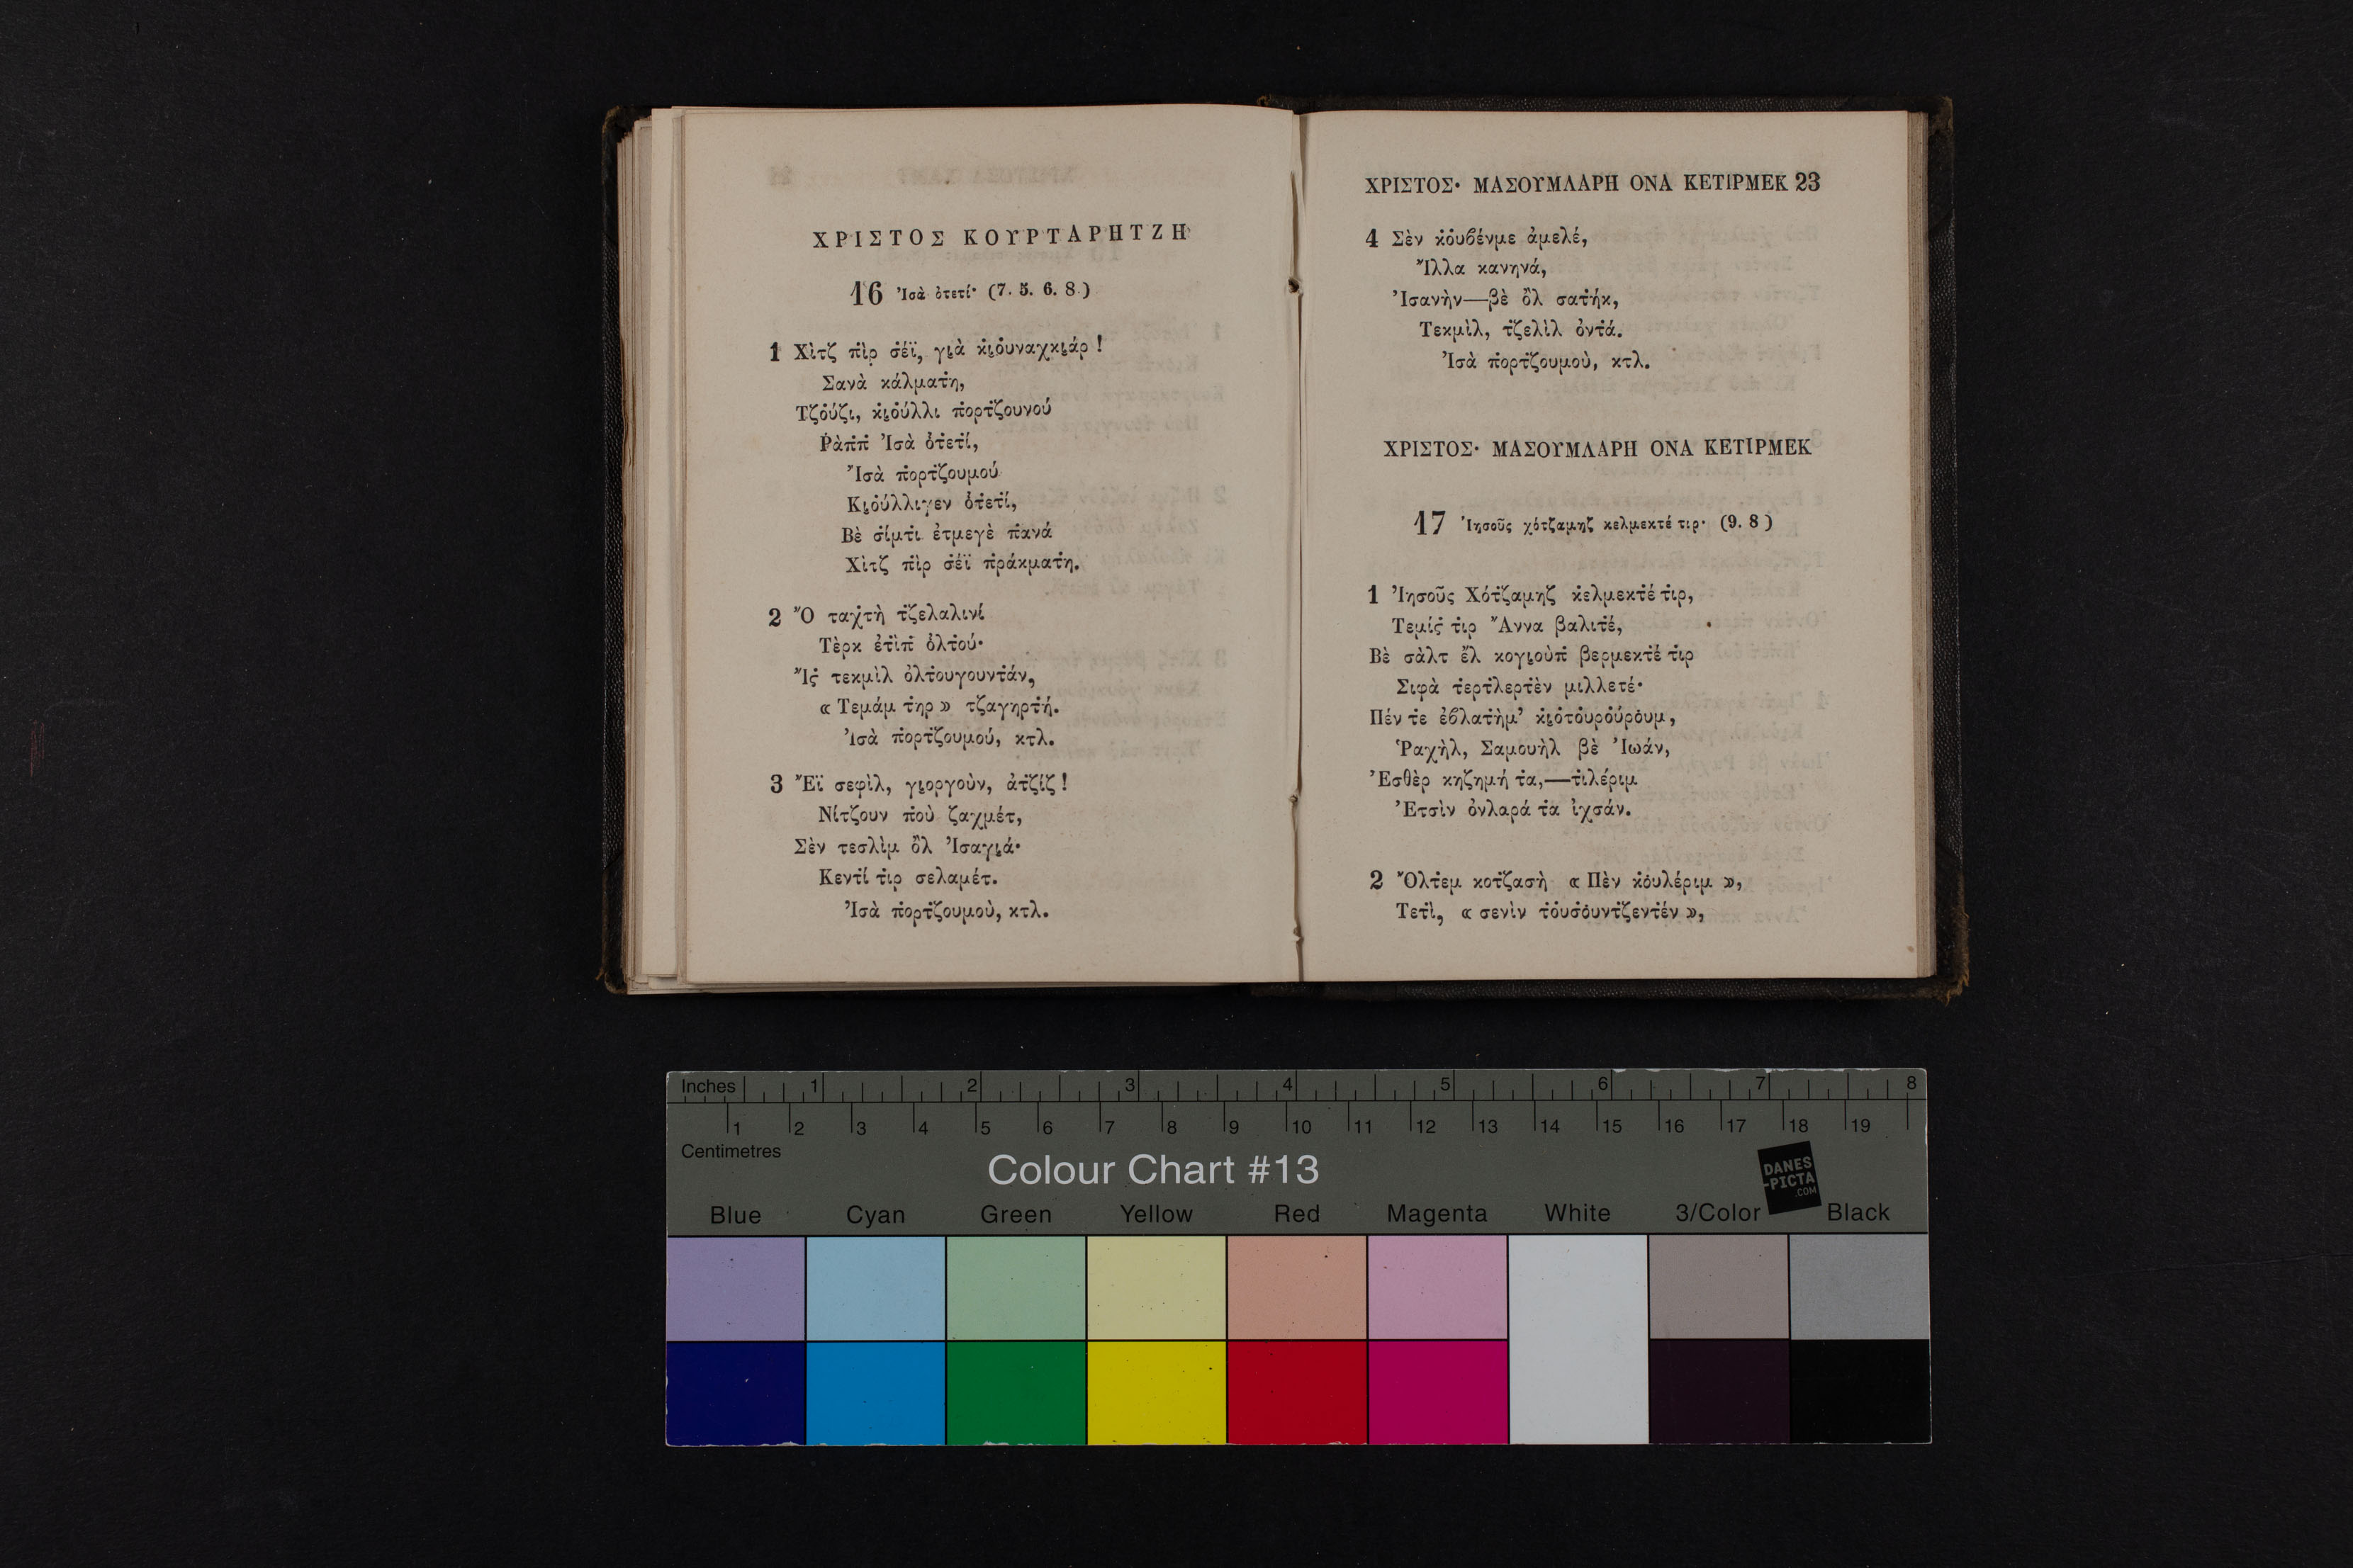 ΧΡΙΣΤΟΣ ΚΟΥΡΤΑΡΗΤΖΗ
16 Ἰσὰ ὀτετί· (7. 5. 6. 8.)
1 Χὶτζ π̇ὶρ σ̇έϊ, γι̯ὰ κι̯ὀυναχκι̯άρ!
Σανὰ κάλματ̇η,
Τζὀύζι, κι̯ὀύλλι π̇ορτζουνού
Ῥὰπ̇π̇ Ἰσὰ ὀτ̇ετ̇ί,
Ἰσὰ π̇ορτζουμού
Κι̯ὀύλλιγεν ὀτ̇ετ̇ί,
Βὲ σ̇ίμτ̇ι ἐτμεγὲ π̇ανά
Χὶτζ π̇ὶρ σ̇έϊ π̇ράκματ̇η.
2 Ὂ ταχτὴ τζελαλινί
Τὲρκ ἐτ̇ὶπ̇ ὀλτ̇ού·
Ἲς̇ τεκμὶλ ὀλτ̇ουγουντ̇άν,
« Τεμάμ τ̇ηρ » τζαγηρτ̇ή.
Ἰσὰ π̇ορτζουμού, κτλ.
3 Ἔϊ σεφὶλ, γι̯οργοὺν, ἀτζίζ!
Νίτζουν π̇οὺ ζαχμέτ,
Σὲν τεσλὶμ ὂλ Ἰσαγι̯ά·
Κεντ̇ί τ̇ιρ σελαμέτ.
Ἰσὰ π̇ορτζουμοὺ, κτλ.
ΧΡΙΣΤΟΣ· ΜΑΣΟΥΜΛΑΡΗ ΟΝΑ ΚΕΤΙΡΜΕΚ 23
4 Σὲν κὀυβένμε ἀμελέ,
Ἴλλα κανηνά,
Ἰσανὴν—βὲ ὂλ σατ̇ήκ,
Τεκμὶλ, τζελὶλ ὀντ̇ά.
Ἰσὰ π̇ορτζουμοὺ, κτλ.
ΧΡΙΣΤΟΣ· ΜΑΣΟΥΜΛΑΡΗ ΟΝΑ ΚΕΤΙΡΜΕΚ
17 Ἰησοῦς χότζαμηζ κελμεκτέ τιρ· (9. 8)
1 Ἰησοῦς Χότζαμηζ κελμεκτ̇έ τ̇ιρ,
Τεμίς̇ τ̇ιρ Ἄννα βαλιτ̇έ,
Βὲ σὰλτ ἒλ κογι̯οὺπ̇ βερμεκτ̇έ τ̇ιρ
Σιφὰ τ̇ερτ̇λερτ̇ὲν μιλλετέ·
Πέν τ̇ε ἐβλατ̇ὴμ’ κι̯ὀτ̇ὀυρὀύρὀυμ,
Ῥαχὴλ, Σαμουὴλ βὲ Ἰωάν,
Ἐσθὲρ κηζημή τ̇α,—τ̇ιλέριμ
Ἐτσὶν ὀνλαρά τ̇α ἰχσάν.
2 Ὄλτ̇εμ κοτζασὴ « Π̇ὲν κὀυλέριμ »,
Τετ̇ὶ, « σενὶν τ̇ὀυσ̇ὀυντζεντ̇έν »,
Inches 1 2 3 4 5 6 7 8
1 2 3 4 5 6 7 8 9 10 11 12 13 14 15 16 17 18 19
Centimetres
Colour Chart #13
DANES
-PICTA
.COM
Blue Cyan Green Yellow Red Magenta White 3/Color Black